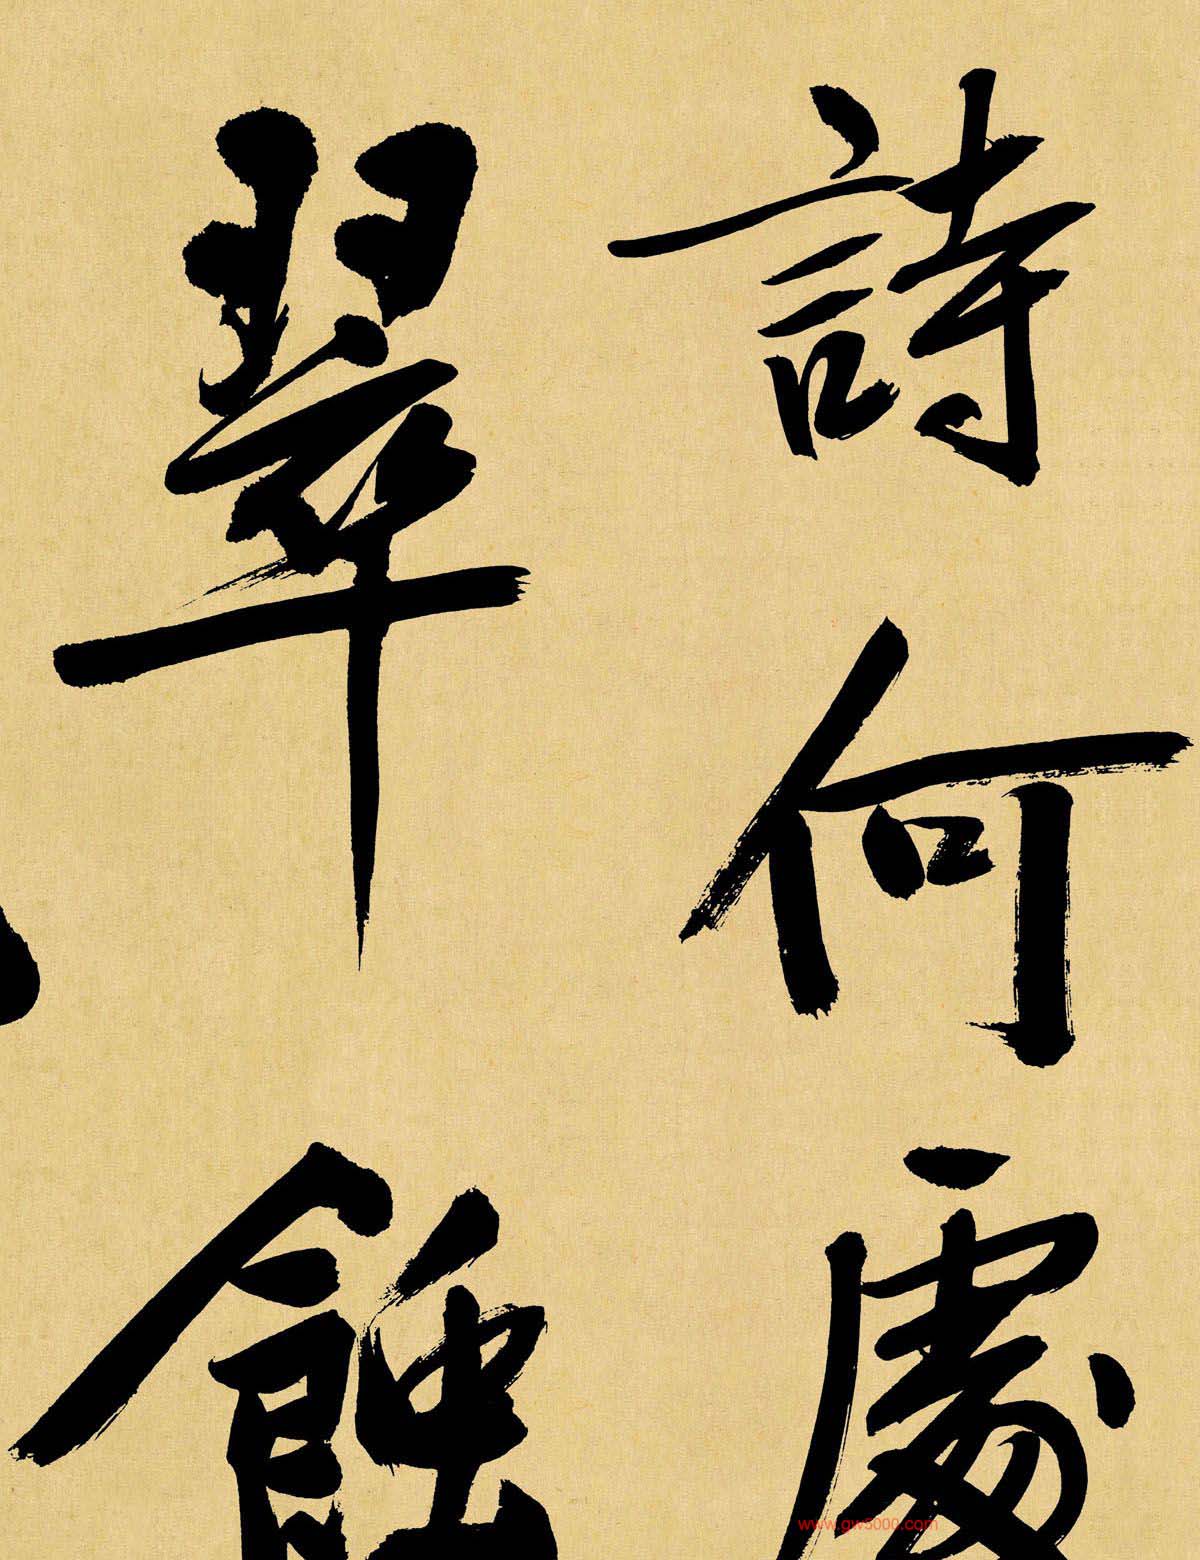 詩何處
翠蝕
www.gw5000.com